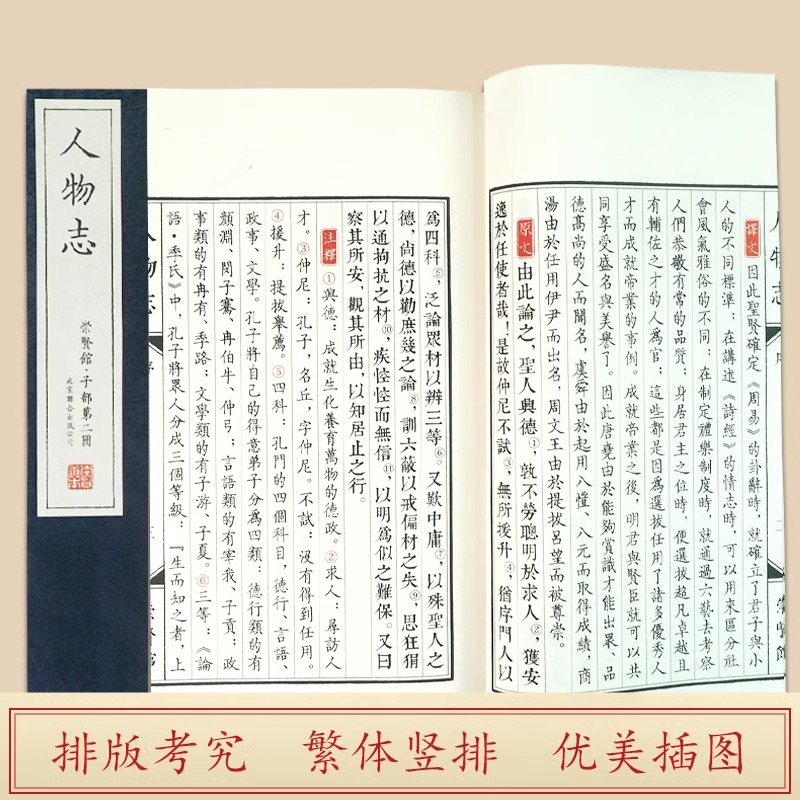 人物志
崇賢館·子部第二圖
北京聯合出版公司
人物志
序
三
崇賢館
譯文 因此聖賢確定《周易》的卦辭時，就確立了君子與小
人的不同標準；在講述《詩經》的情志時，可以用來區分社
會風氣雅俗的不同；在制定禮樂制度時，就通過六藝去考察
人們恭敬有常的品質；身居君主之位時，便選拔超凡卓越且
有輔佐之才的人爲官；這些都是因爲選拔任用了諸多優秀人
才而成就帝業的事例。成就帝業之後，明君與賢臣就可以共
同享受盛名與美譽了。因此唐堯由於能夠賞識才能出眾、品
德高尚的人而聞名，虞舜由於起用八愷、八元而取得成績，商
湯由於任用伊尹而出名，周文王由於提拔呂望而被尊崇。
原文 由此論之，聖人興德①，孰不勞聰明於求人②，獲安
逸於任使者哉！是故仲尼不試③，無所援升④，猶序門人以
爲四科⑤，泛論眾材以辨三等⑥。又歎中庸⑦，以殊聖人之
德，尚德以勸庶幾之論⑧，訓六蔽以戒偏材之失⑨，思狂狷
以通拘抗之材⑩，疾悾悾而無信⑪，以明爲似之難保。又曰
察其所安，觀其所由，以知居止之行。
注釋 ①興德：成就生化養育萬物的德政。②求人：尋訪人
才。③仲尼：孔子，名丘，字仲尼。不試：沒有得到任用。
④援升：提拔舉薦。⑤四科：孔門的四個科目，德行、言語、
政事、文學。孔子將自己的得意弟子分爲四類：德行類的有
顏淵、閔子騫、冉伯牛、仲弓；言語類的有宰我、子貢；政
事類的有冉有、季路；文學類的有子游、子夏。⑥三等：《論
語·季氏》中，孔子將眾人分成三個等級：『生而知之者，上
排版考究 繁体竖排 优美插图